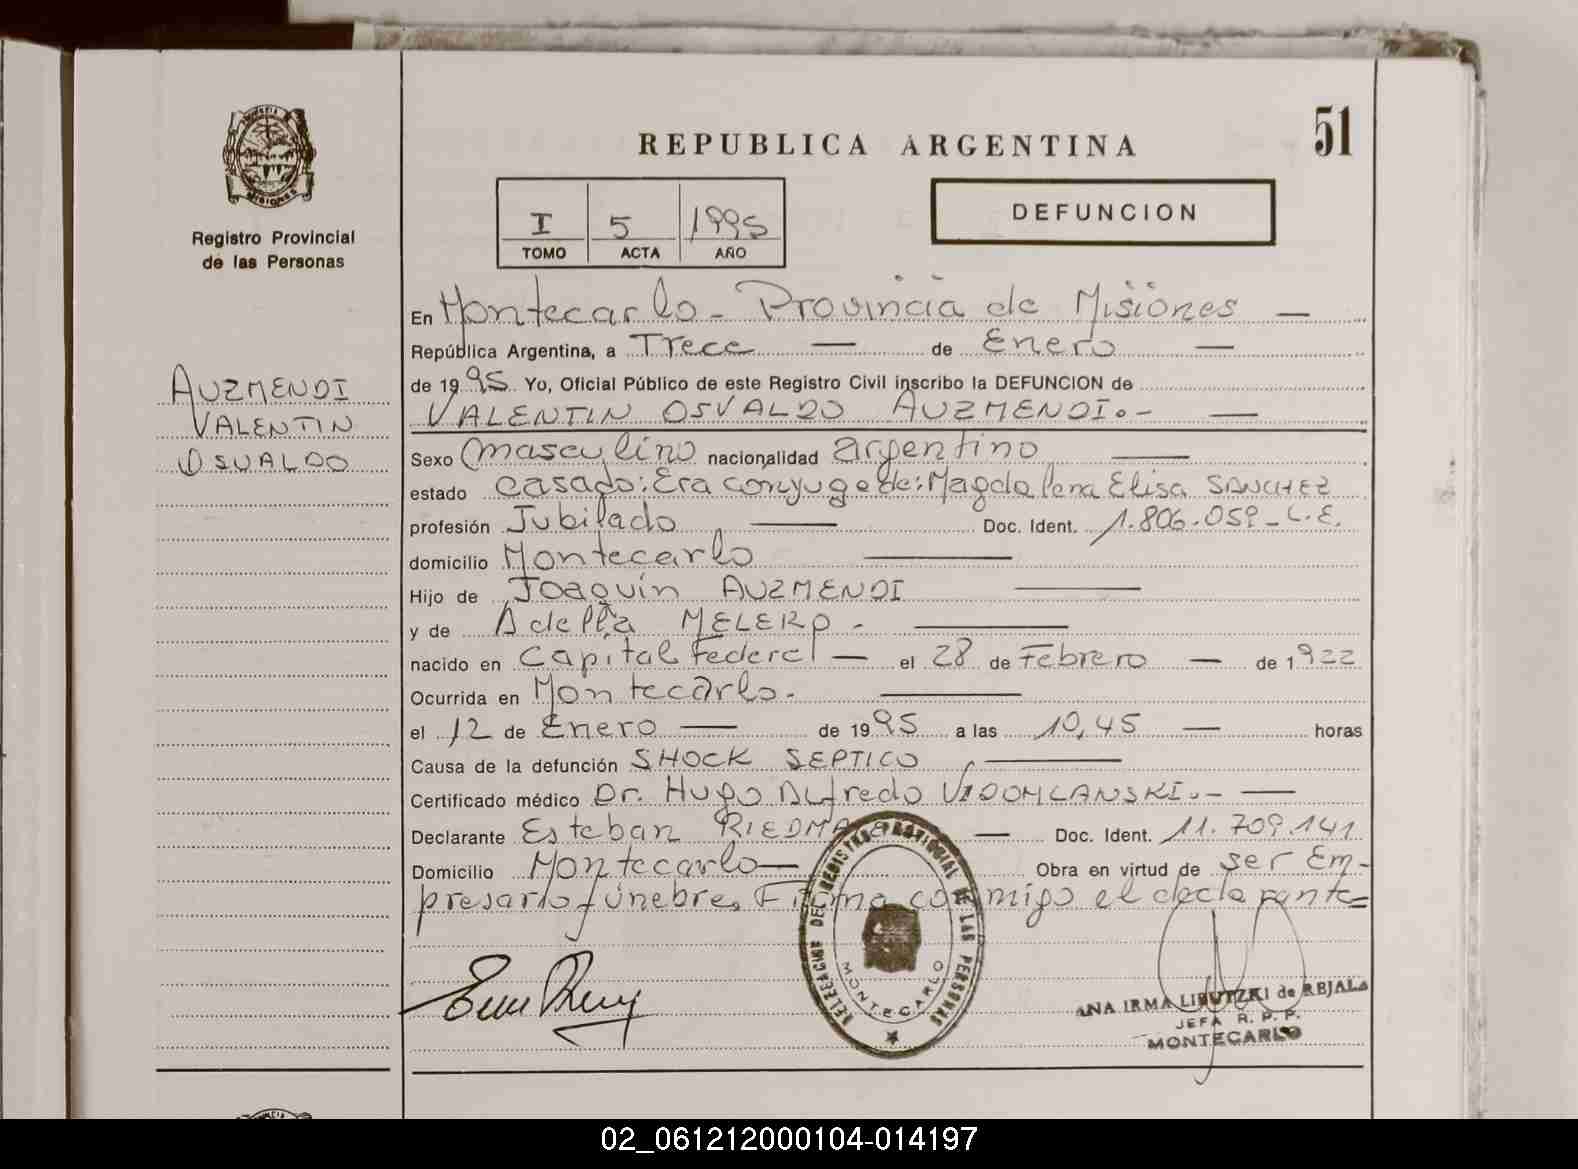 51
REPUBLICA ARGENTINA
PROVINCIA DE
MISIONES
Registro Provincial
de las Personas
DEFUNCION
I 5 1995
TOMO ACTA AÑO
En Montecarlo - Provincia de Misiones —
República Argentina, a Trece — de Enero —
AUZMENDI
VALENTIN
OSVALDO
de 1995 Yo, Oficial Público de este Registro Civil inscribo la DEFUNCION de
VALENTIN OSVALDO AUZMENDI.- —
Sexo masculino nacionalidad argentino —
estado casado: Era conyuge de: Magdalena Elisa SANCHEZ
profesión Jubilado — Doc. Ident. 1.806.059 - L.E.
domicilio Montecarlo —
Hijo de Joaquín AUZMENDI —
y de Adella MELERO - —
nacido en Capital Federal — el 28 de Febrero — de 1922
Ocurrida en Montecarlo. —
el 12 de Enero — de 1995 a las 10,45 — horas
Causa de la defunción SHOCK SEPTICO —
Certificado médico Dr. Hugo Alfredo VIDOMLANSKI.- —
Declarante Esteban — Doc. Ident. 11.709.141
Domicilio Montecarlo — Obra en virtud de ser Em-
presario fúnebre. Firma conmigo el declarante=
DELEGACION DEL REGISTRO PROVINCIAL DE LAS PERSONAS
MONTECARLO
ANA IRMA de REJALA
JEFA R. P. P.
MONTECARLO
02_061212000104-014197